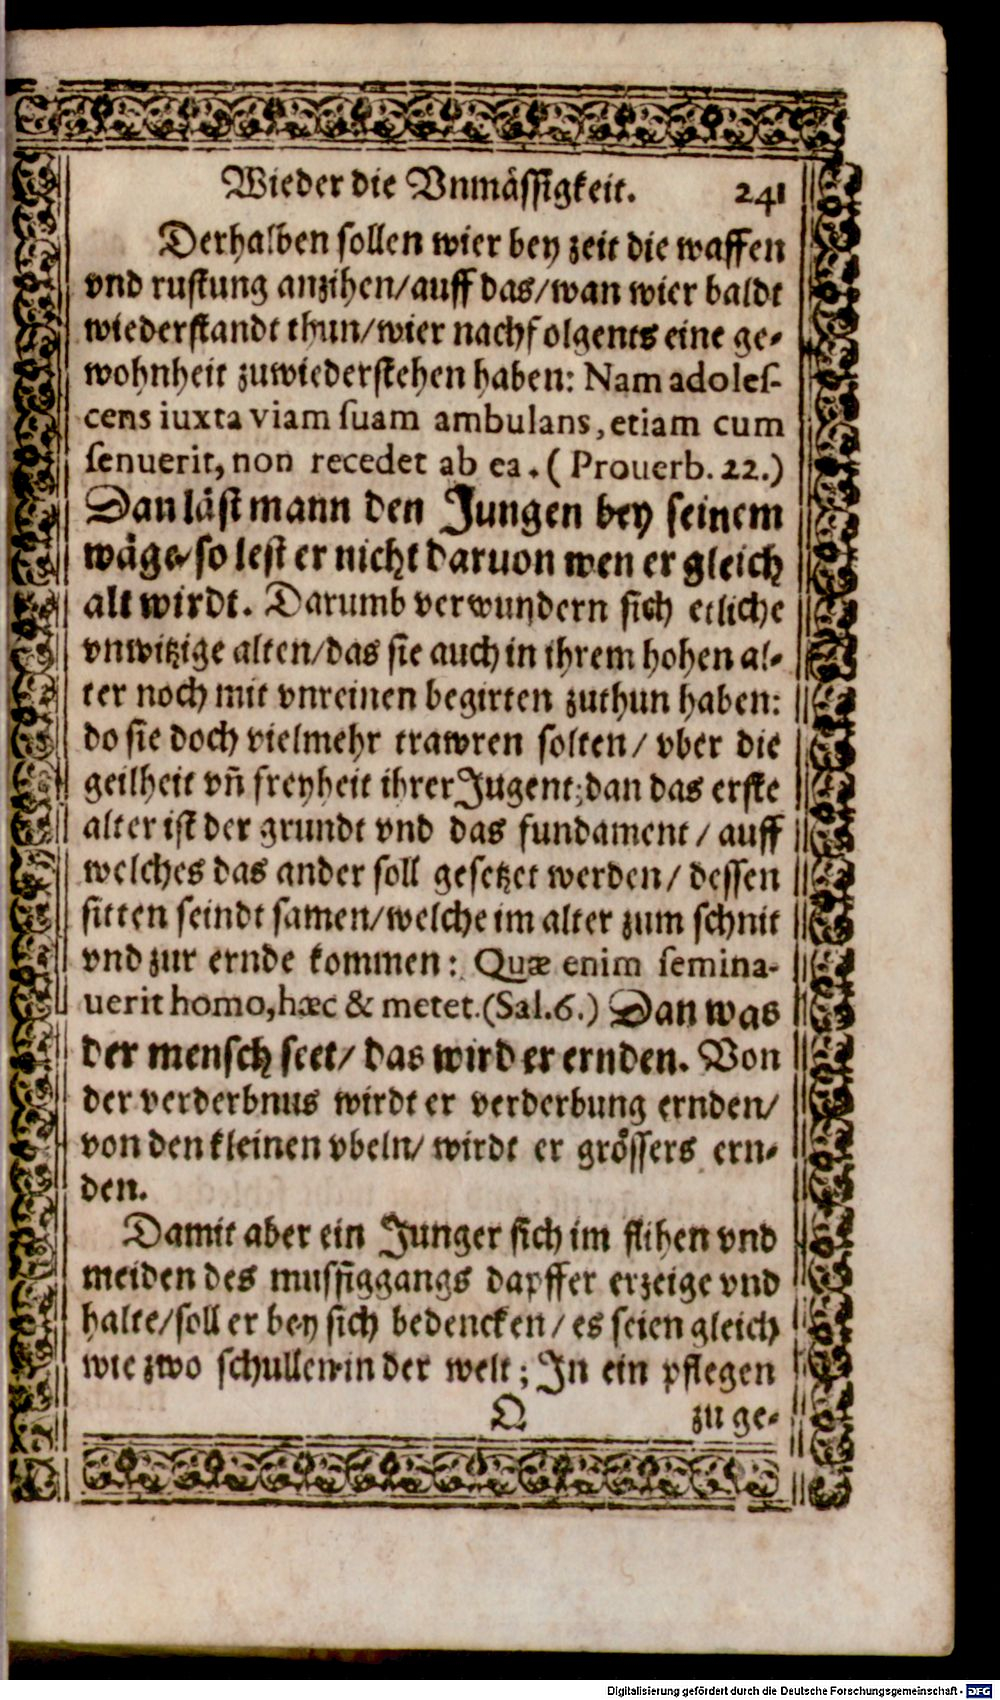 Wieder die Vnmässigkeit. 241
Derhalben sollen wier bey zeit die waffen
vnd rustung anzihen/auff das/wan wier baldt
wiederstandt thun/wier nachfolgents eine ge-
wohnheit zuwiederstehen haben: Nam adoleſ-
cens iuxta viam ſuam ambulans, etiam cum
ſenuerit, non recedet ab ea. (Prouerb. 22.)
Dan läst mann den Jungen bey seinem
wäge/so lest er nicht daruon wen er gleich
alt wirdt. Darumb verwundern sich etliche
vnwitzige alten/das sie auch in ihrem hohen al-
ter noch mit vnreinen begirten zuthun haben:
do sie doch vielmehr trawren solten/ vber die
geilheit vñ freyheit ihrer Jugent; dan das erste
alter ist der grundt vnd das fundament/ auff
welches das ander soll gesetzet werden/ dessen
sitten seindt samen/welche im alter zum schnit
vnd zur ernde kommen: Quæ enim ſemina-
uerit homo, hæc & metet. (Sal. 6.) Dan was
der mensch seet/ das wird er ernden. Von
der verderbnus wirdt er verderbung ernden/
von den kleinen vbeln/ wirdt er grössers ern-
den.
Damit aber ein Junger sich im flihen vnd
meiden des mussiggangs dapffer erzeige vnd
halte/soll er bey sich bedencken/ es seien gleich
wie zwo schullen in der welt; In ein pflegen
Q zu ge-
Digitalisierung gefördert durch die Deutsche Forschungsgemeinschaft - DFG